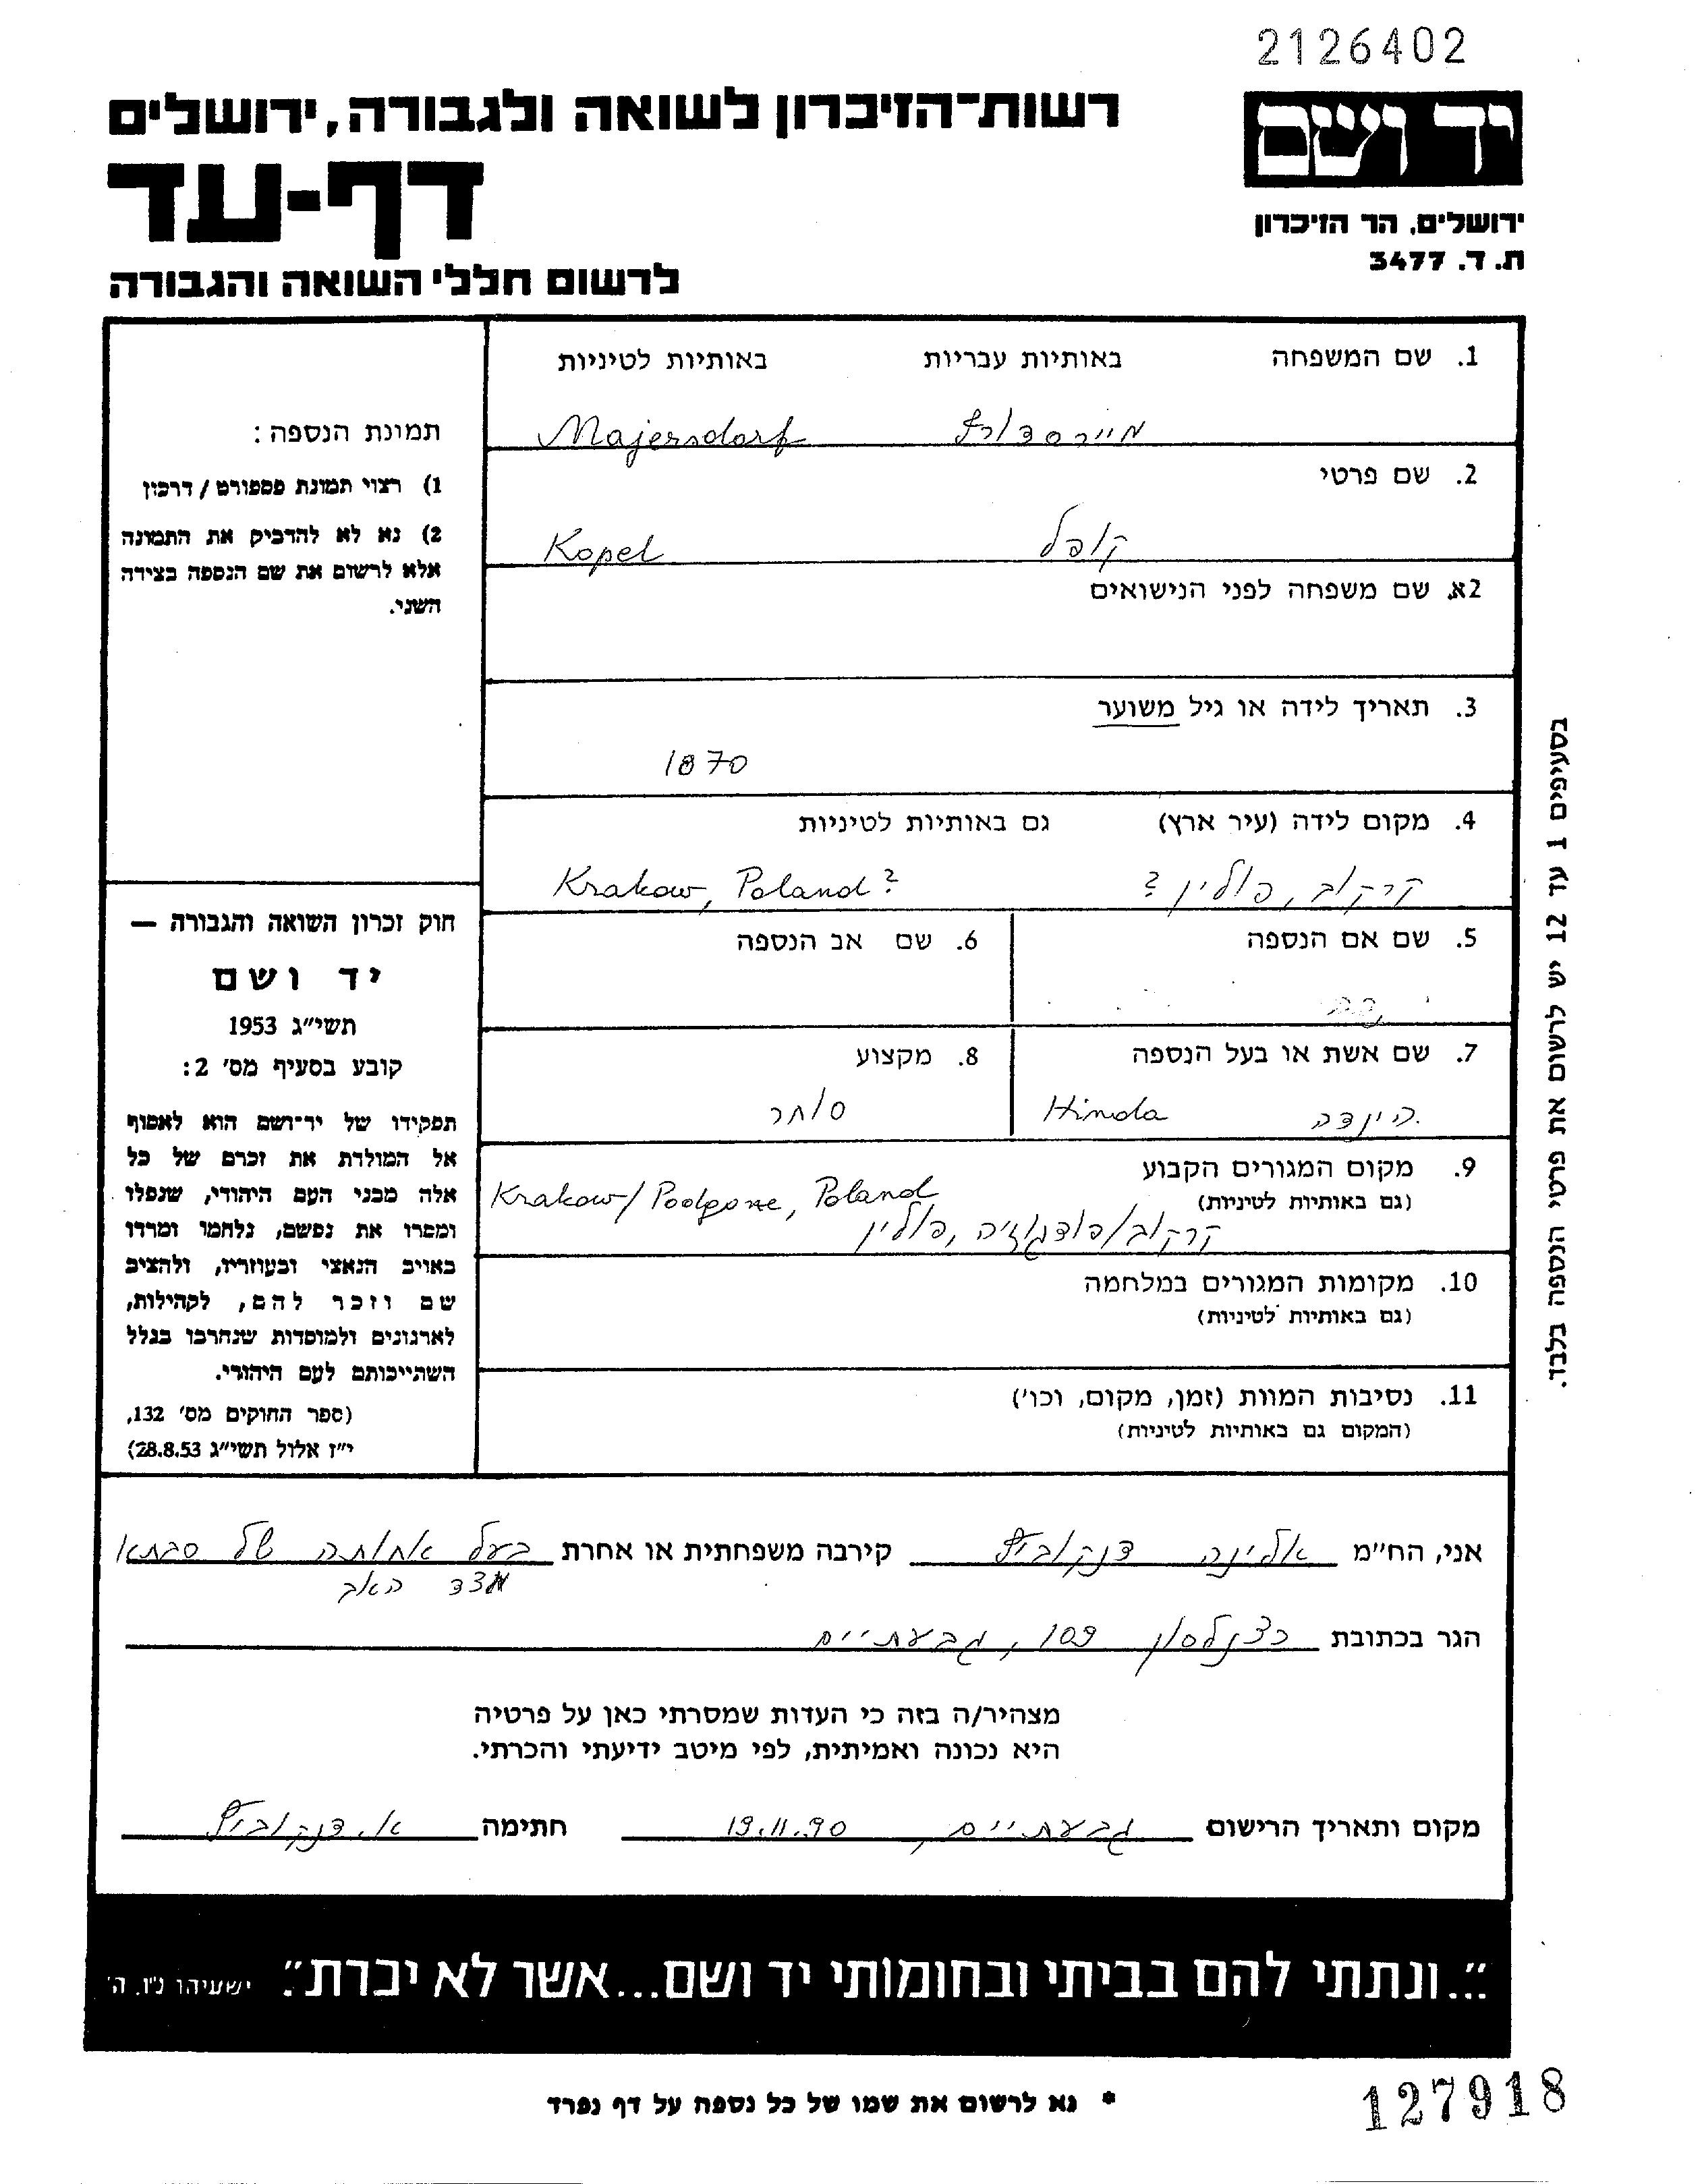 2126402
רשות-הזיכרון לשואה ולגבורה, ירושלים
דף-עד
לרשום חללי השואה והגבורה
יד ושם
ירושלים, הר הזיכרון
ת. ד. 3477
1. שם המשפחה באותיות עבריות באותיות לטיניות
מיירסדורף Majersdorf
2. שם פרטי
קופל Kopel
2א. שם משפחה לפני הנישואים
3. תאריך לידה או גיל משוער
1870
4. מקום לידה (עיר ארץ) גם באותיות לטיניות
קרקוב, פולין ? Krakow, Poland ?
5. שם אם הנספה 6. שם אב הנספה
7. שם אשת או בעל הנספה 8. מקצוע
הינדה Hinda סוחר
9. מקום המגורים הקבוע
(גם באותיות לטיניות)
Krakow/Podgorze, Poland
קרקוב/פודגוזיה, פולין
10. מקומות המגורים במלחמה
(גם באותיות לטיניות)
11. נסיבות המוות (זמן, מקום, וכו')
(המקום גם באותיות לטיניות)
תמונת הנספה:
1) רצוי תמונת פספורט / דרכון
2) נא לא להדביק את התמונה
אלא לרשום את שם הנספה בצידה
השני.
חוק זכרון השואה והגבורה —
יד ושם
תשי״ג 1953
קובע בסעיף מס' 2:
תפקידו של יד־ושם הוא לאסוף
אל המולדת את זכרם של כל
אלה מבני העם היהודי, שנפלו
ומסרו את נפשם, נלחמו ומרדו
באויב הנאצי ובעוזריו, ולהציב
שם וזכר להם, לקהילות,
לארגונים ולמוסדות שנחרבו בגלל
השתייכותם לעם היהודי.
(ספר החוקים מס' 132,
י״ז אלול תשי״ג 28.8.53)
בסעיפים 1 עד 12 יש לרשום את פרטי הנספה בלבד.
אני, הח״מ אלינה דנקוביץ קירבה משפחתית או אחרת בעל אחותה של סבתא
מצד האב
הגר בכתובת כצנלסון 109, גבעתיים
מצהיר/ה בזה כי העדות שמסרתי כאן על פרטיה
היא נכונה ואמיתית, לפי מיטב ידיעתי והכרתי.
מקום ותאריך הרישום גבעתיים, 19.11.90 חתימה א. דנקוביץ
״...ונתתי להם בביתי ובחומותי יד ושם...אשר לא יכרת״. ישעיהו נ״ו, ה'
* נא לרשום את שמו של כל נספה על דף נפרד
127918